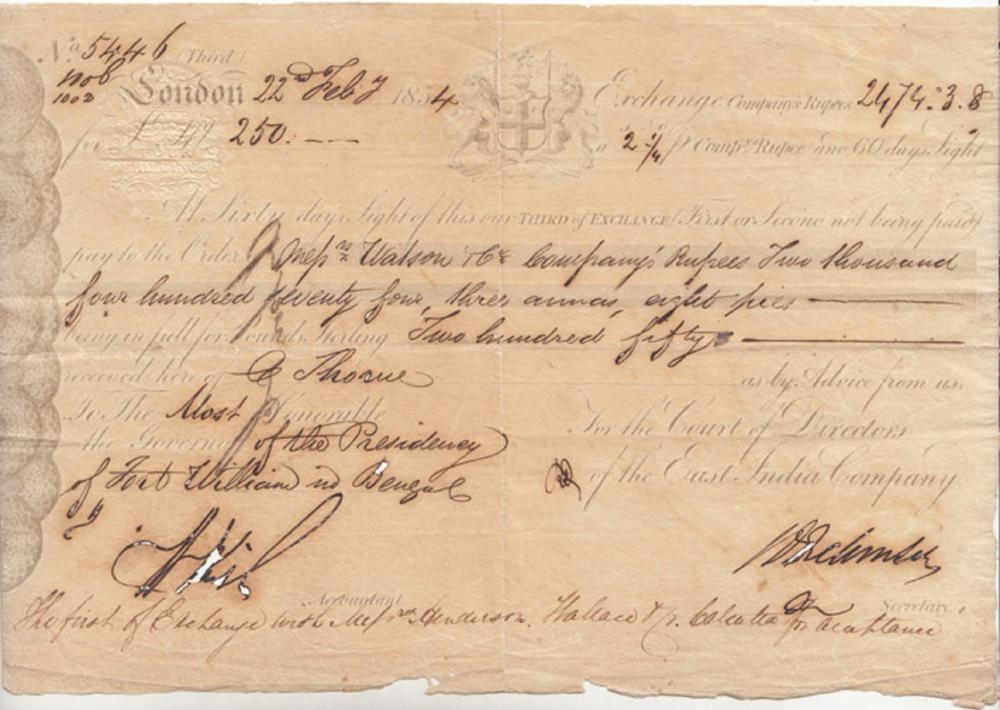 No. 5446 (Third)
1002
London 22nd Feby 1854
Exchange Company's Rupees 2474.3.8
for £ 250.
a 2-/¼ p Compy's Rupee and 60 days Sight
At Sixty days Sight of this our THIRD of EXCHANGE (First or Second not being paid)
pay to the Order of Messrs Watson & Co Company's Rupees Two thousand
four hundred seventy four, three annas, eight pies
being in full for Pounds Sterling Two hundred fifty
received here of
as by Advice from us.
To The Most Honorable
the Governor of the Presidency
of Fort William in Bengal
For the Court of Directors
of the East India Company
Accountant
Secretary
The first of Exchange with Messrs Henderson, Wallace & Co. Calcutta for acceptance